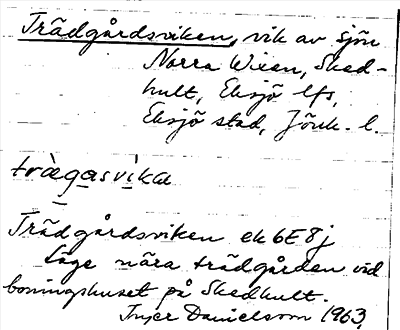 Trädgårdsviken, vik av sjön
Norra Wixen, Sked-
hult, Eksjö lfs,
Eksjö stad, Jönk. l.
trägasvika
Trädgårdsviken ek 6E8j
Läge nära trädgården vid
boningshuset på Skedhult.
Inger Danielsson 1963